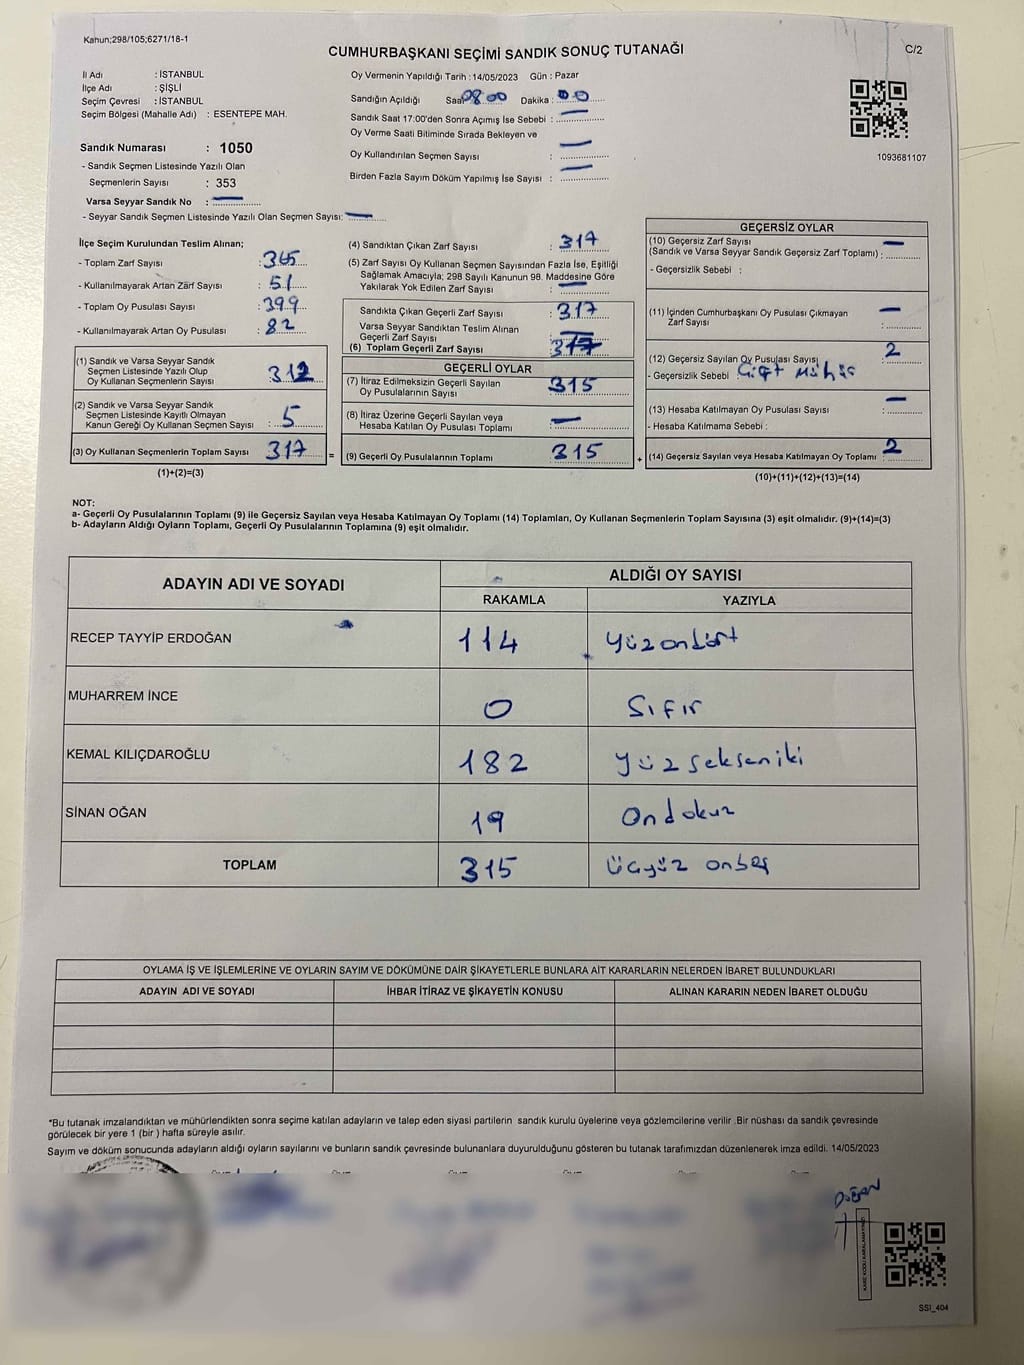 Kanun;298/105;6271/18-1
CUMHURBAŞKANI SEÇİMİ SANDIK SONUÇ TUTANAĞI
C/2
İl Adı : İSTANBUL
İlçe Adı : ŞİŞLİ
Seçim Çevresi : İSTANBUL
Seçim Bölgesi (Mahalle Adı) : ESENTEPE MAH.
Sandık Numarası : 1050
- Sandık Seçmen Listesinde Yazılı Olan
Seçmenlerin Sayısı : 353
Varsa Seyyar Sandık No : —
- Seyyar Sandık Seçmen Listesinde Yazılı Olan Seçmen Sayısı: —
Oy Vermenin Yapıldığı Tarih : 14/05/2023 Gün : Pazar
Sandığın Açıldığı Saat 08:00 Dakika : 00
Sandık Saat 17:00'den Sonra Açımış İse Sebebi : —
Oy Verme Saati Bitiminde Sırada Bekleyen ve
Oy Kullandırılan Seçmen Sayısı : —
Birden Fazla Sayım Döküm Yapılmış İse Sayısı : —
1093681107
İlçe Seçim Kurulundan Teslim Alınan;
- Toplam Zarf Sayısı : 365
- Kullanılmayarak Artan Zarf Sayısı : 51
- Toplam Oy Pusulası Sayısı : 399
- Kullanılmayarak Artan Oy Pusulası : 82
(1) Sandık ve Varsa Seyyar Sandık
Seçmen Listesinde Yazılı Olup
Oy Kullanan Seçmenlerin Sayısı : 312
(2) Sandık ve Varsa Seyyar Sandık
Seçmen Listesinde Kayıtlı Olmayan
Kanun Gereği Oy Kullanan Seçmen Sayısı : 5
(3) Oy Kullanan Seçmenlerin Toplam Sayısı : 317 =
(1)+(2)=(3)
(4) Sandıktan Çıkan Zarf Sayısı : 317
(5) Zarf Sayısı Oy Kullanan Seçmen Sayısından Fazla İse, Eşitliği
Sağlamak Amacıyla; 298 Sayılı Kanunun 98. Maddesine Göre
Yakılarak Yok Edilen Zarf Sayısı : —
Sandıkta Çıkan Geçerli Zarf Sayısı : 317
Varsa Seyyar Sandıktan Teslim Alınan
Geçerli Zarf Sayısı : —
(6) Toplam Geçerli Zarf Sayısı : 317
GEÇERLİ OYLAR
(7) İtiraz Edilmeksizin Geçerli Sayılan
Oy Pusulalarının Sayısı : 315
(8) İtiraz Üzerine Geçerli Sayılan veya
Hesaba Katılan Oy Pusulası Toplamı : —
(9) Geçerli Oy Pusulalarının Toplamı : 315 +
GEÇERSİZ OYLAR
(10) Geçersiz Zarf Sayısı
(Sandık ve Varsa Seyyar Sandık Geçersiz Zarf Toplamı) : —
- Geçersizlik Sebebi :
(11) İçinden Cumhurbaşkanı Oy Pusulası Çıkmayan
Zarf Sayısı : —
(12) Geçersiz Sayılan Oy Pusulası Sayısı : 2
- Geçersizlik Sebebi : Çift Mühür
(13) Hesaba Katılmayan Oy Pusulası Sayısı : —
- Hesaba Katılmama Sebebi :
(14) Geçersiz Sayılan veya Hesaba Katılmayan Oy Toplamı : 2
(10)+(11)+(12)+(13)=(14)
NOT:
a- Geçerli Oy Pusulalarının Toplamı (9) ile Geçersiz Sayılan veya Hesaba Katılmayan Oy Toplamı (14) Toplamları, Oy Kullanan Seçmenlerin Toplam Sayısına (3) eşit olmalıdır. (9)+(14)=(3)
b- Adayların Aldığı Oyların Toplamı, Geçerli Oy Pusulalarının Toplamına (9) eşit olmalıdır.
ADAYIN ADI VE SOYADI
ALDIĞI OY SAYISI
RAKAMLA YAZIYLA
RECEP TAYYİP ERDOĞAN 114 Yüzondört
MUHARREM İNCE 0 Sıfır
KEMAL KILIÇDAROĞLU 182 yüzsekseniki
SİNAN OĞAN 19 Ondokuz
TOPLAM 315 üçyüz onbeş
OYLAMA İŞ VE İŞLEMLERİNE VE OYLARIN SAYIM VE DÖKÜMÜNE DAİR ŞİKAYETLERLE BUNLARA AİT KARARLARIN NELERDEN İBARET BULUNDUKLARI
ADAYIN ADI VE SOYADI İHBAR İTİRAZ VE ŞİKAYETİN KONUSU ALINAN KARARIN NEDEN İBARET OLDUĞU
*Bu tutanak imzalandıktan ve mühürlendikten sonra seçime katılan adayların ve talep eden siyasi partilerin sandık kurulu üyelerine veya gözlemcilerine verilir .Bir nüshası da sandık çevresinde
görülecek bir yere 1 (bir ) hafta süreyle asılır.
Sayım ve döküm sonucunda adayların aldığı oyların sayılarını ve bunların sandık çevresinde bulunanlara duyurulduğunu gösteren bu tutanak tarafımızdan düzenlenerek imza edildi. 14/05/2023
DOĞAN
KARE KODU KARALAMAYINIZ!
SSİ_404